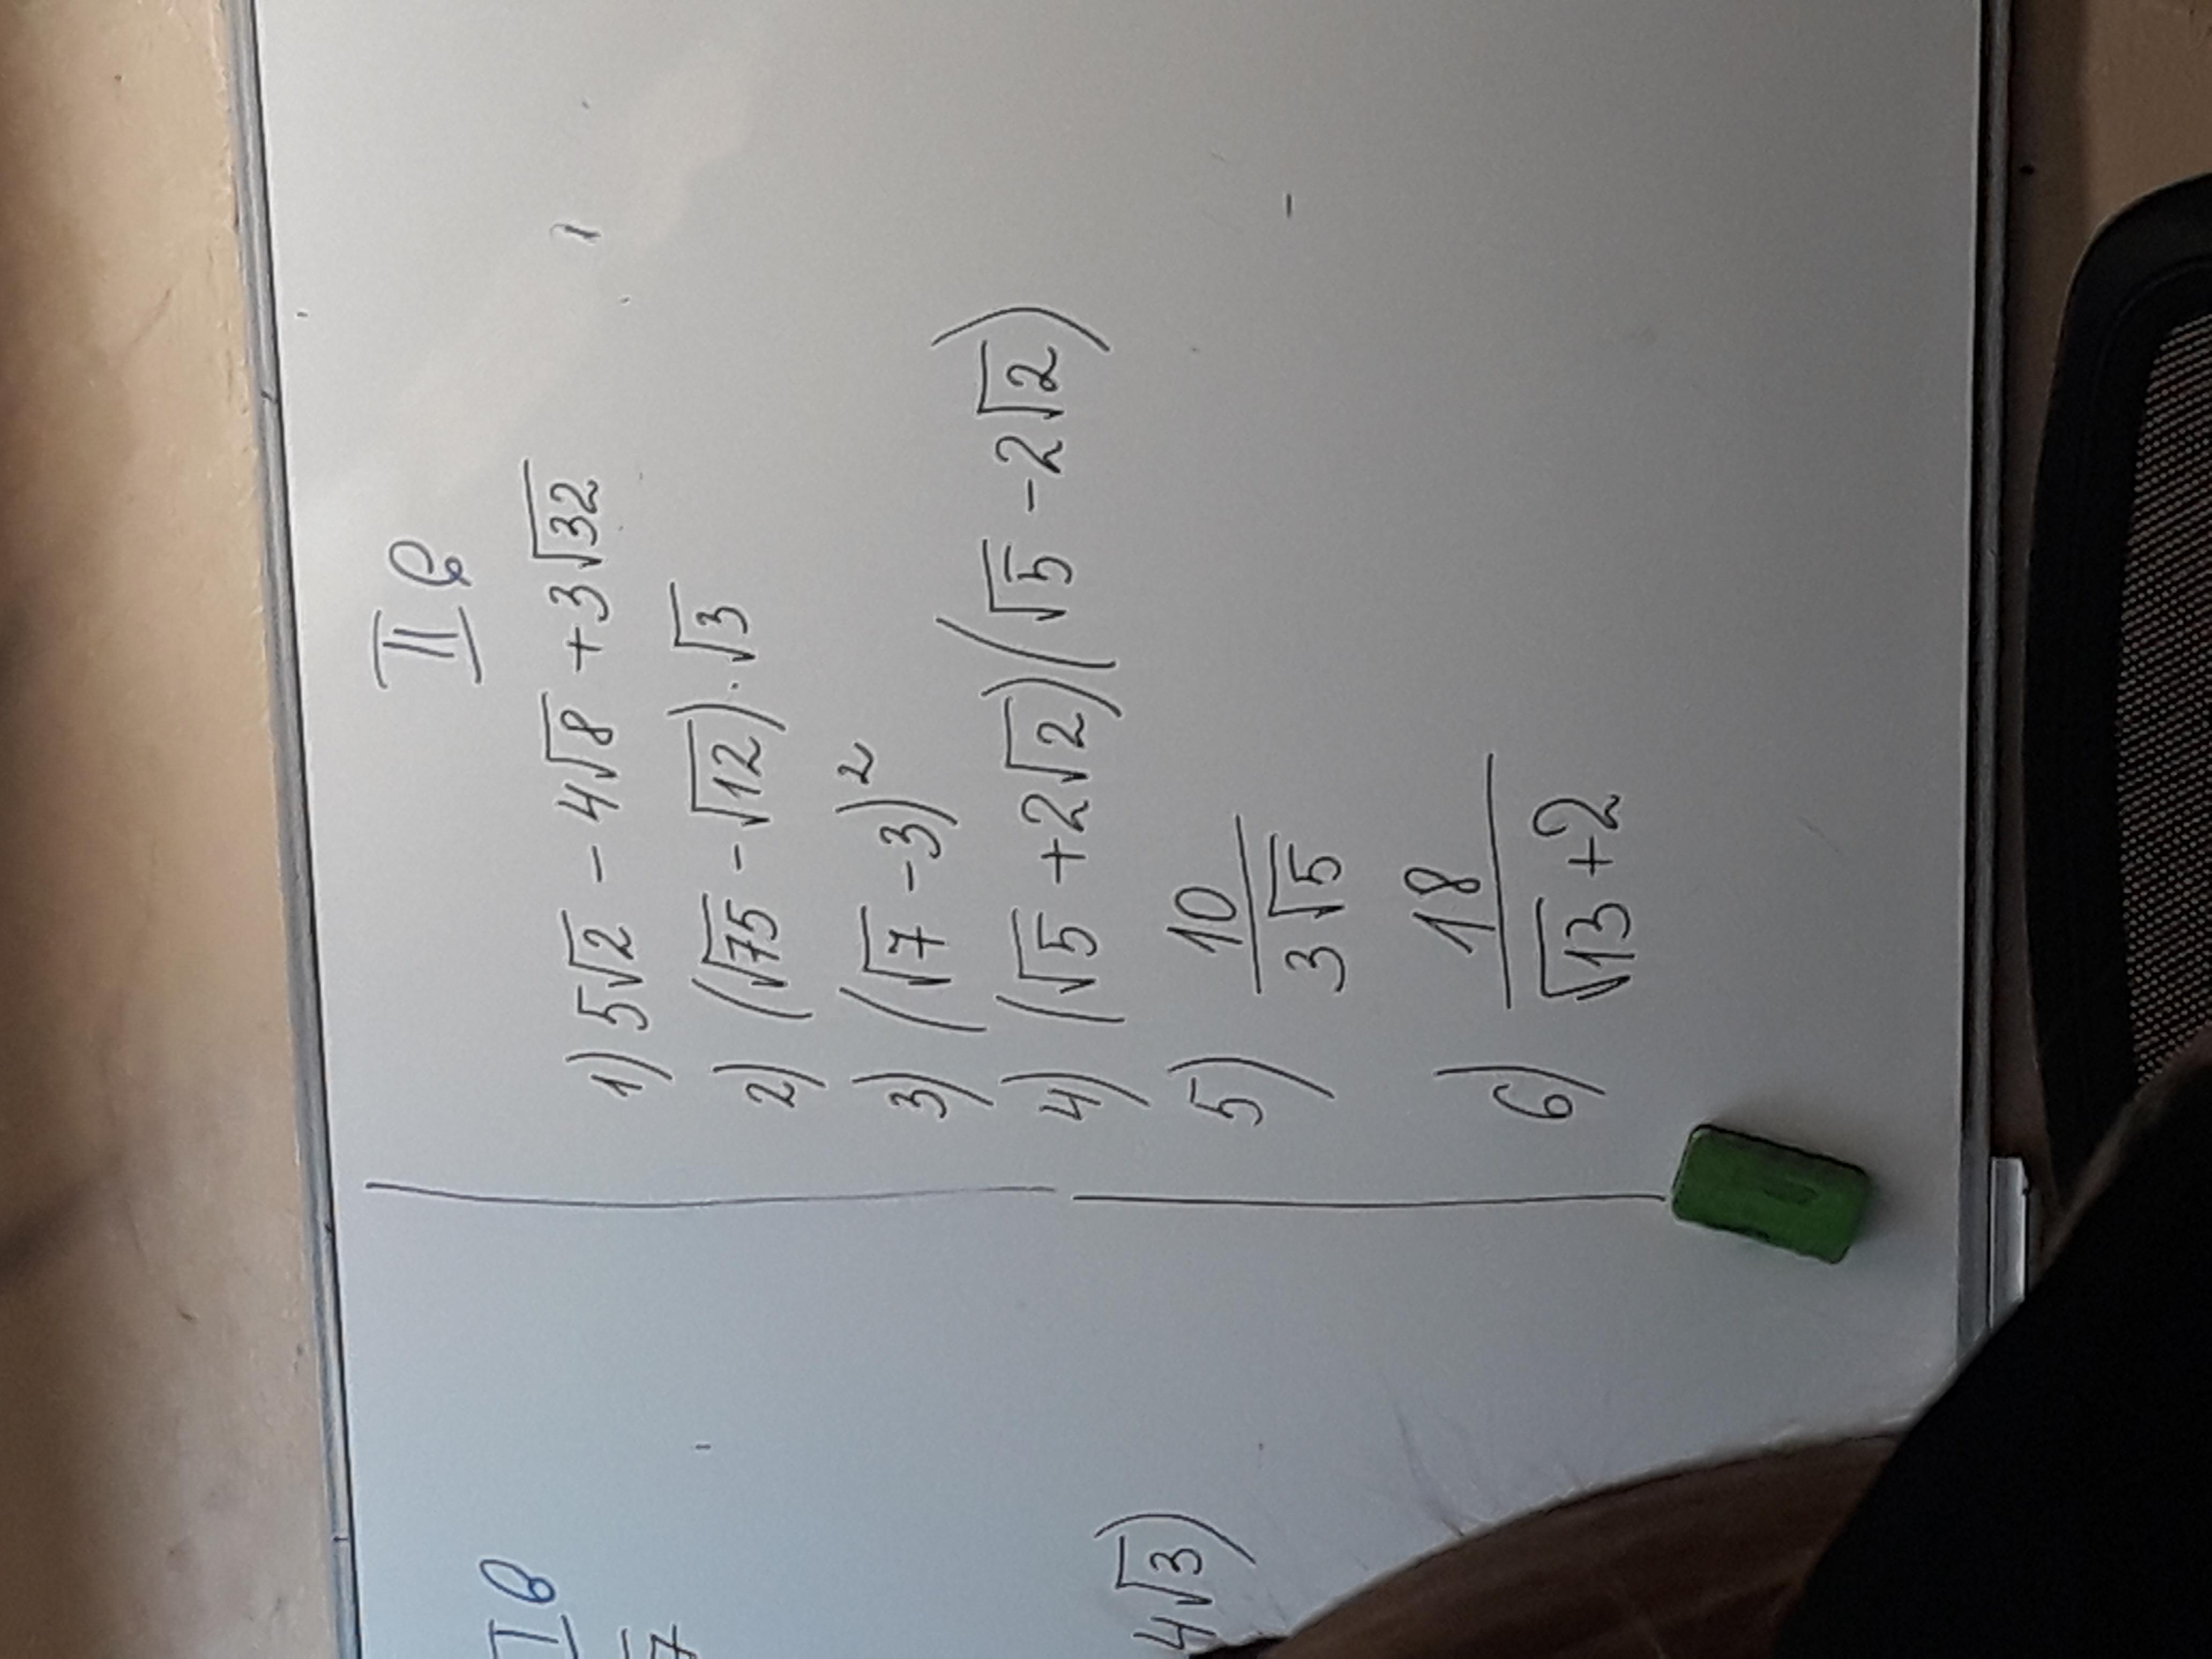 I в
7
4√3)
II в
1) 5√2 - 4√8 + 3√32
2) (√75 - √12) · √3
3) (√7 - 3)²
4) (√5 + 2√2)(√5 - 2√2)
5) 10/(3√5)
6) 18/(√13 + 2)